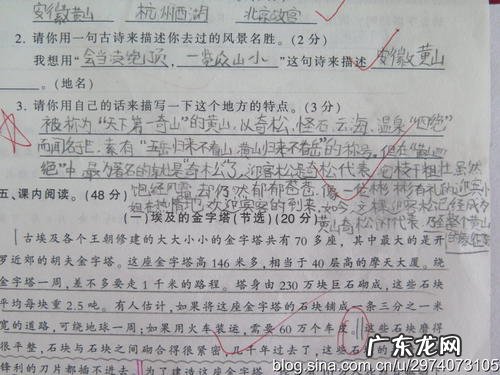 安徽黄山 杭州西湖 北京故宫
2. 请你用一句古诗来描述你去过的风景名胜。(2 分)
我想用“会当凌绝顶,一览众山小”这句诗来描述 安徽黄山
。(地名)
3. 请你用自己的话来描写一下这个地方的特点。(3 分)
被称为“天下第一奇山”的黄山,以奇松、怪石、云海、温泉“四绝”
而闻名于世,素有“五岳归来不看山,黄山归来不看岳”的称号。但在“黄山四
绝”中,最为著名的就是“奇松”了,迎客松是奇松代表,它枝干粗壮,虽然
饱经风霜,却仍然郁郁苍苍,像一位彬彬有礼的迎宾小
五、课内阅读。(48 分)
姐在热情地欢迎宾客的到来。如今,这棵迎客松已经成为
(一)埃及的金字塔(节选)(20 分)
黄山奇松的代表,乃至整个黄山
的象征
古埃及各个王朝修建的大大小小的金字塔共有 70 多座,其中最大的是开
罗近郊的胡夫金字塔。这座金字塔高 146 米多,相当于 40 层高的摩天大厦。绕
金字塔一周,差不多要走 1 千米的路程。塔身由 230 万块巨石砌成,这些石块
平均每块重 2.5 吨。有人估计,如果将这座金字塔的石块铺成一条三分之一米
宽的道路,可绕地球一周;如果用火车装运,需要 60 万个车皮。这些石块磨得
很平整,石块与石块之间砌合得很紧密,几千年过去了,这些石
锋利的刀片都插不进去。为了建造这座金字塔,
广东龙网
blog.sina.com.cn/u/2974073105